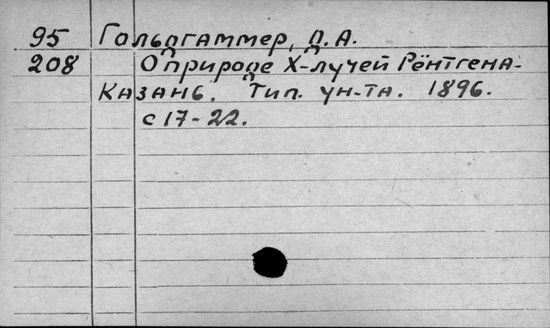 95 Гольдгаммер, Д.А.
208 О природе X-лучей Рёнтгена.
Казань. Тип. ун-та. 1896.
с 17-22.